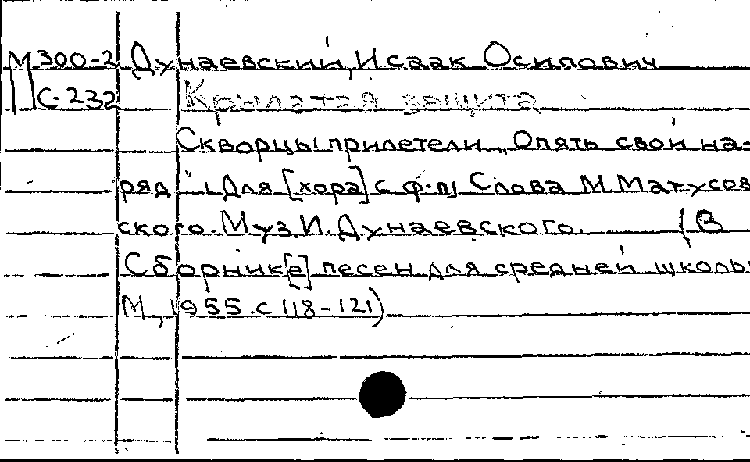 М 300-2 Дунаевский, Исаак Осипович
С-232 Крылатая защита
Скворцы прилетели. "Опять свой на-
ряд..." Для [хора] с ф-п. Слова М. Матусов
ского. Муз. И. Дунаевского. (В
Сборник[е] песен для средней школы
М., 1955. с 118-121)